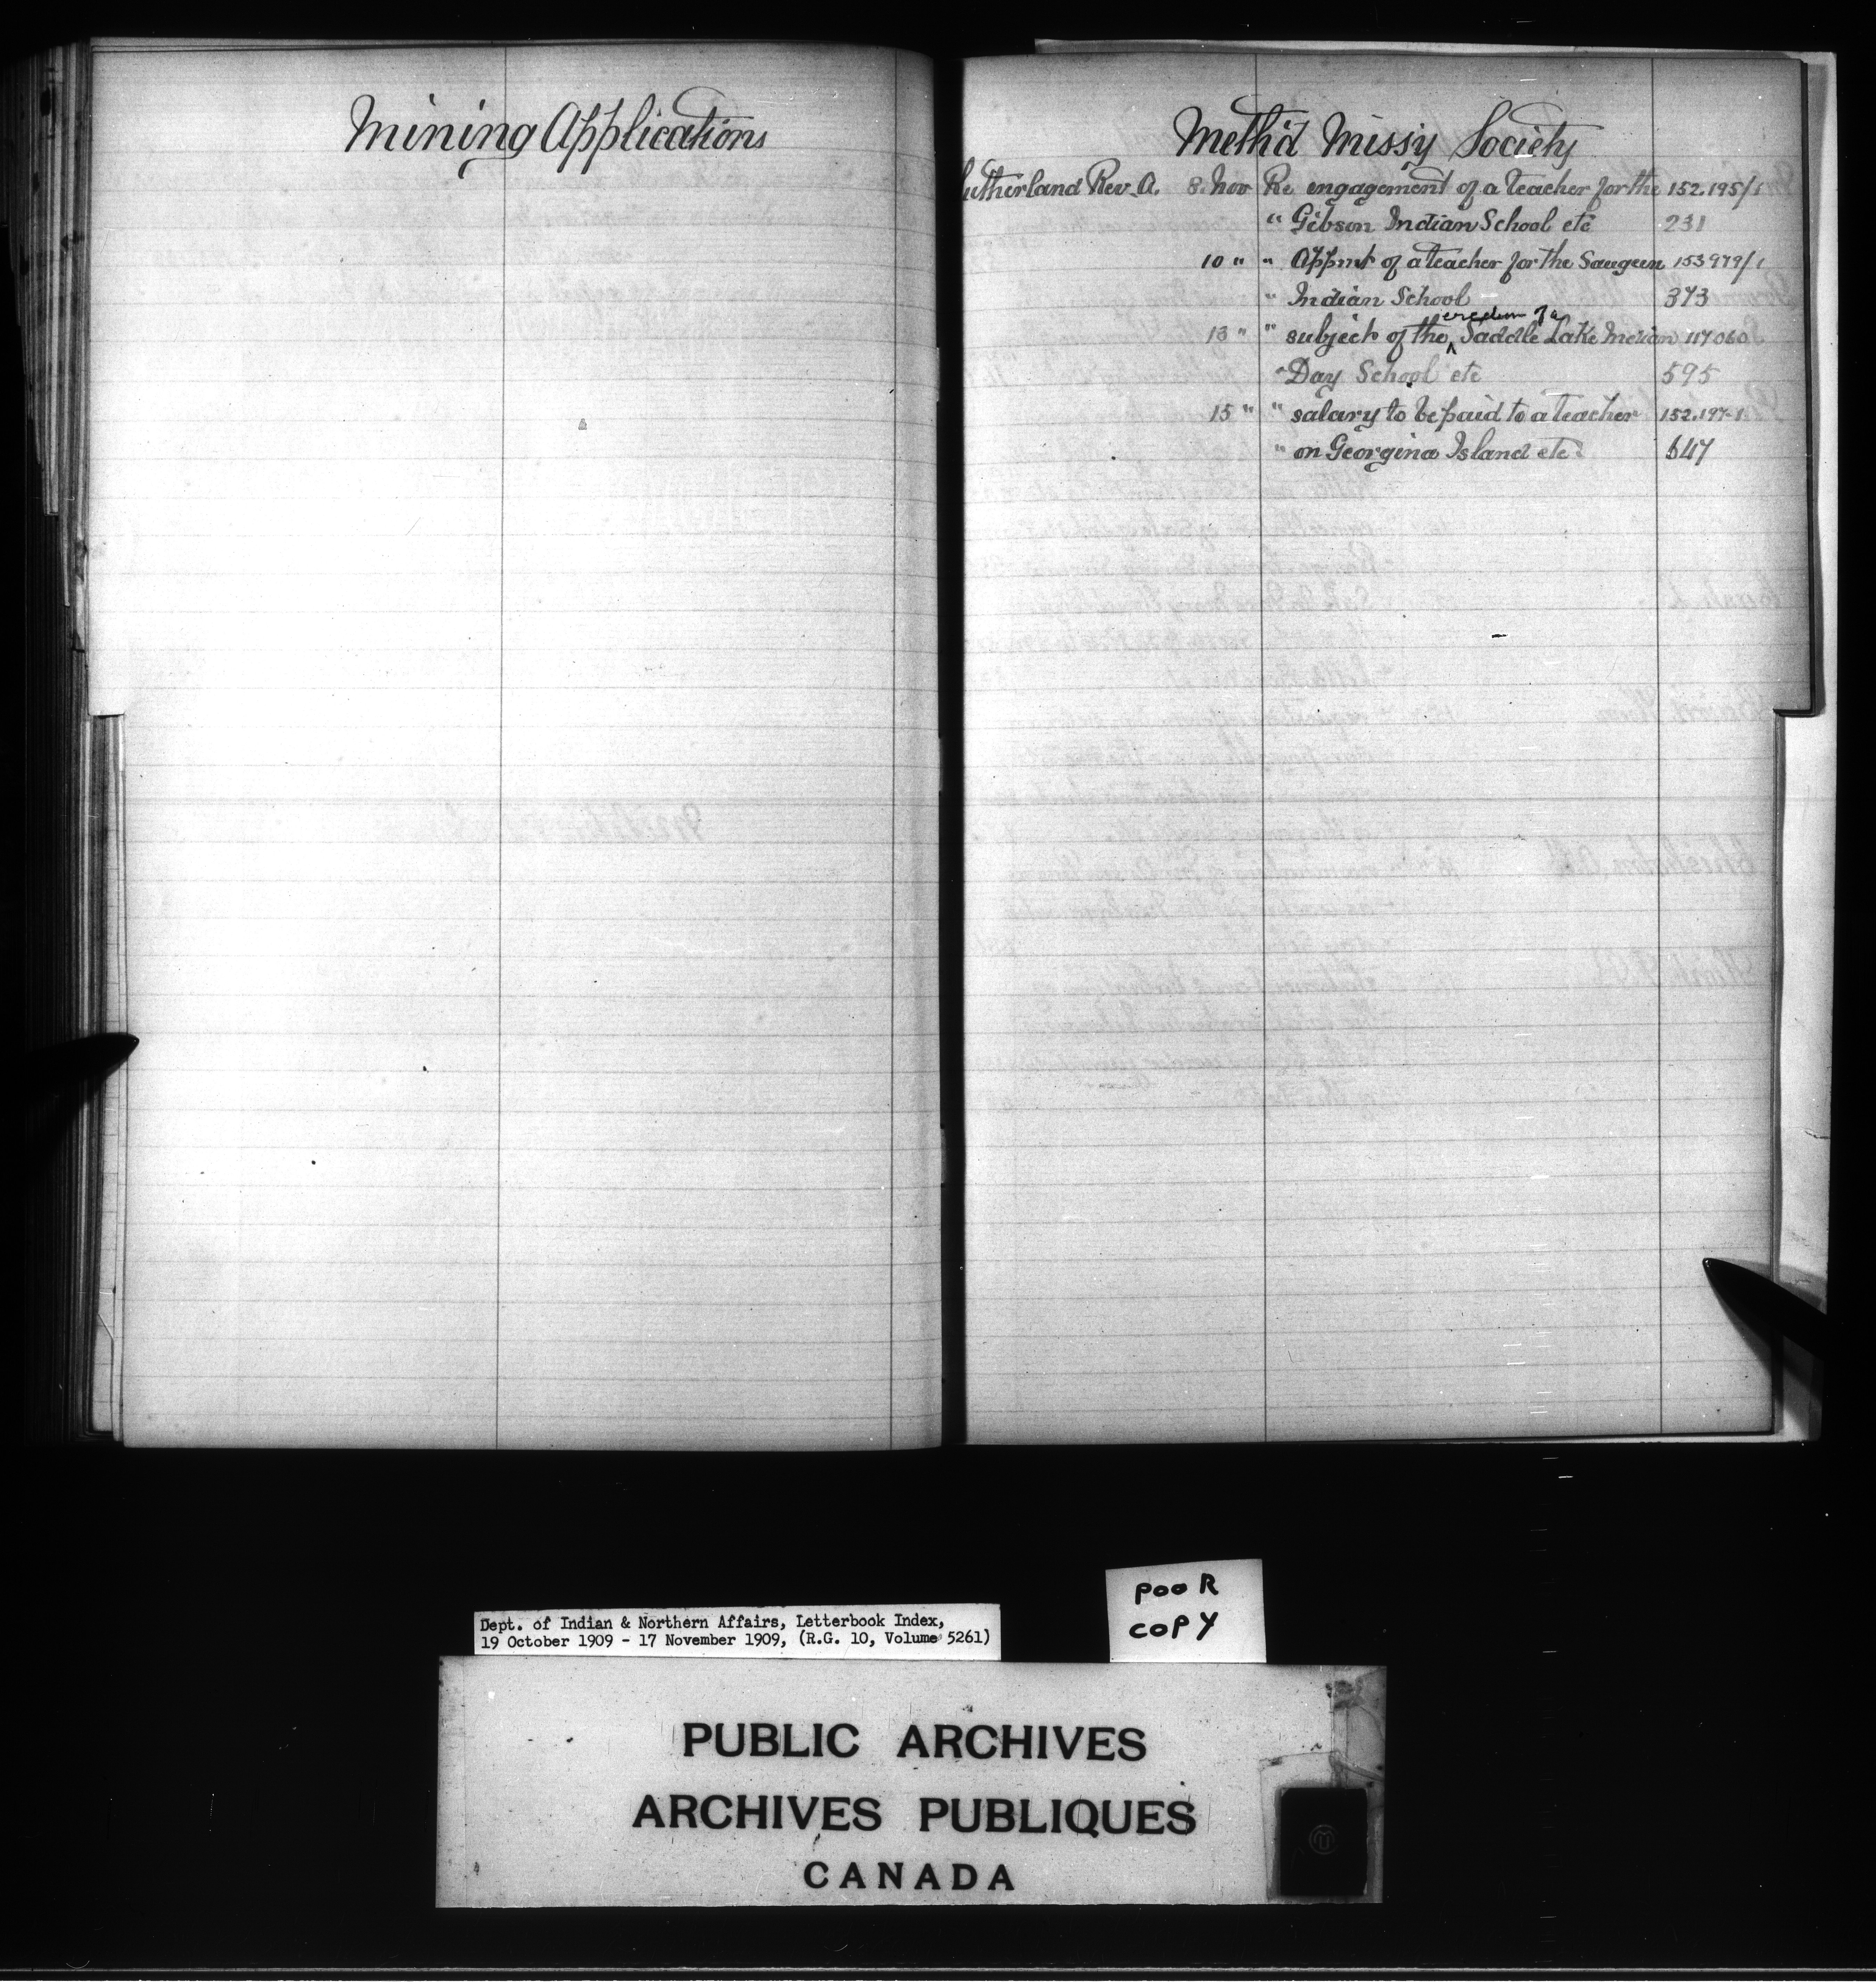 Mining Applications
Meth'd Missy Society
Sutherland Rev. A. 8. Nov Re engagement of a teacher for the 152.195/1
" Gibson Indian School etc 231
10 " " Appmt of a teacher for the Saugeen 153979/1
" Indian School 373
erection of a
13 " " subject of the Saddle Lake Indian 117060
" Day School etc 595
15 " " salary to be paid to a teacher 152.197-1
" on Georgina Island etc 647
POOR
COPY
Dept. of Indian & Northern Affairs, Letterbook Index,
19 October 1909 - 17 November 1909, (R.G. 10, Volume 5261)
PUBLIC ARCHIVES
ARCHIVES PUBLIQUES
CANADA